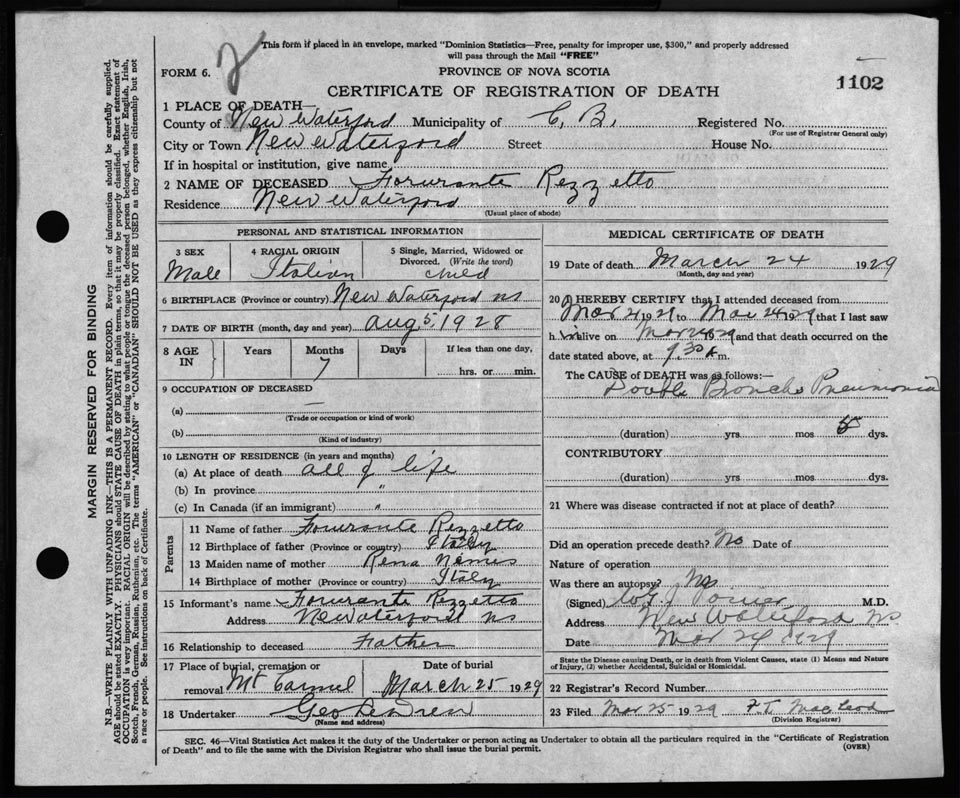 2
This form if placed in an envelope, marked "Dominion Statistics—Free, penalty for improper use, $300," and properly addressed
will pass through the Mail "FREE"
FORM 6.
PROVINCE OF NOVA SCOTIA
1102
CERTIFICATE OF REGISTRATION OF DEATH
1 PLACE OF DEATH—
County of New Waterford Municipality of C. B. Registered No.
(For use of Registrar General only)
City or Town New Waterford Street House No.
If in hospital or institution, give name
2 NAME OF DECEASED Forurante Rezzetto
Residence New Waterford
(Usual place of abode)
PERSONAL AND STATISTICAL INFORMATION
3 SEX 4 RACIAL ORIGIN 5 Single, Married, Widowed or
Divorced. (Write the word)
Male Italian child
6 BIRTHPLACE (Province or country) New Waterford NS
7 DATE OF BIRTH (month, day and year) Aug 5, 1928
8 AGE IN Years Months Days If less than one day,
7 hrs. or min.
9 OCCUPATION OF DECEASED
(a) —
(Trade or occupation or kind of work)
(b)
(Kind of industry)
10 LENGTH OF RESIDENCE (in years and months)
(a) At place of death all of life
(b) In province "
(c) In Canada (if an immigrant) "
Parents
11 Name of father Forurante Rezzetto
12 Birthplace of father (Province or country) Italy
13 Maiden name of mother Rena
14 Birthplace of mother (Province or country) Italy
15 Informant's name Forurante Rezzetto
Address New Waterford NS
16 Relationship to deceased Father
17 Place of burial, cremation or Date of burial
removal Mt Carmel March 25 1929
18 Undertaker Geo
(Name and address)
MEDICAL CERTIFICATE OF DEATH
19 Date of death March 24 1929
(Month, day and year)
20 I HEREBY CERTIFY that I attended deceased from
Mar 1929 to Mar 24 1929 that I last saw
h im alive on Mar 24 1929 and that death occurred on the
date stated above, at 9.30 m.
The CAUSE of DEATH was as follows:—
Double Broncho Pneumonia
(duration) yrs mos 5 dys.
CONTRIBUTORY
(duration) yrs mos dys.
21 Where was disease contracted if not at place of death?
Did an operation precede death? No Date of
Nature of operation
Was there an autopsy? No
(Signed) M.D.
Address New Waterford NS
Date Mar 24 1929
State the Disease causing Death, or in death from Violent Causes, state (1) Means and Nature
of Injury, (2) whether Accidental, Suicidal or Homicidal.
22 Registrar's Record Number
23 Filed Mar 25 1929 F. T. MacLeod
(Division Registrar)
SEC. 46—Vital Statistics Act makes it the duty of the Undertaker or person acting as Undertaker to obtain all the particulars required in the "Certificate of Registration
of Death" and to file the same with the Division Registrar who shall issue the burial permit.
(OVER)
MARGIN RESERVED FOR BINDING
N.B.—WRITE PLAINLY WITH UNFADING INK—THIS IS A PERMANENT RECORD. Every item of information should be carefully supplied.
AGE should be stated EXACTLY. PHYSICIANS should STATE CAUSE OF DEATH in plain terms, so that it may be properly classified. Exact statement of
OCCUPATION is very important. RACIAL ORIGIN will be described by stating to what people or tongue the deceased person belonged, whether English, Irish,
Scotch, French, German, Russian, Ruthenian, etc. The terms "AMERICAN" or "CANADIAN" SHOULD NOT BE USED as they express citizenship but not
a race or people. See instructions on back of Certificate.